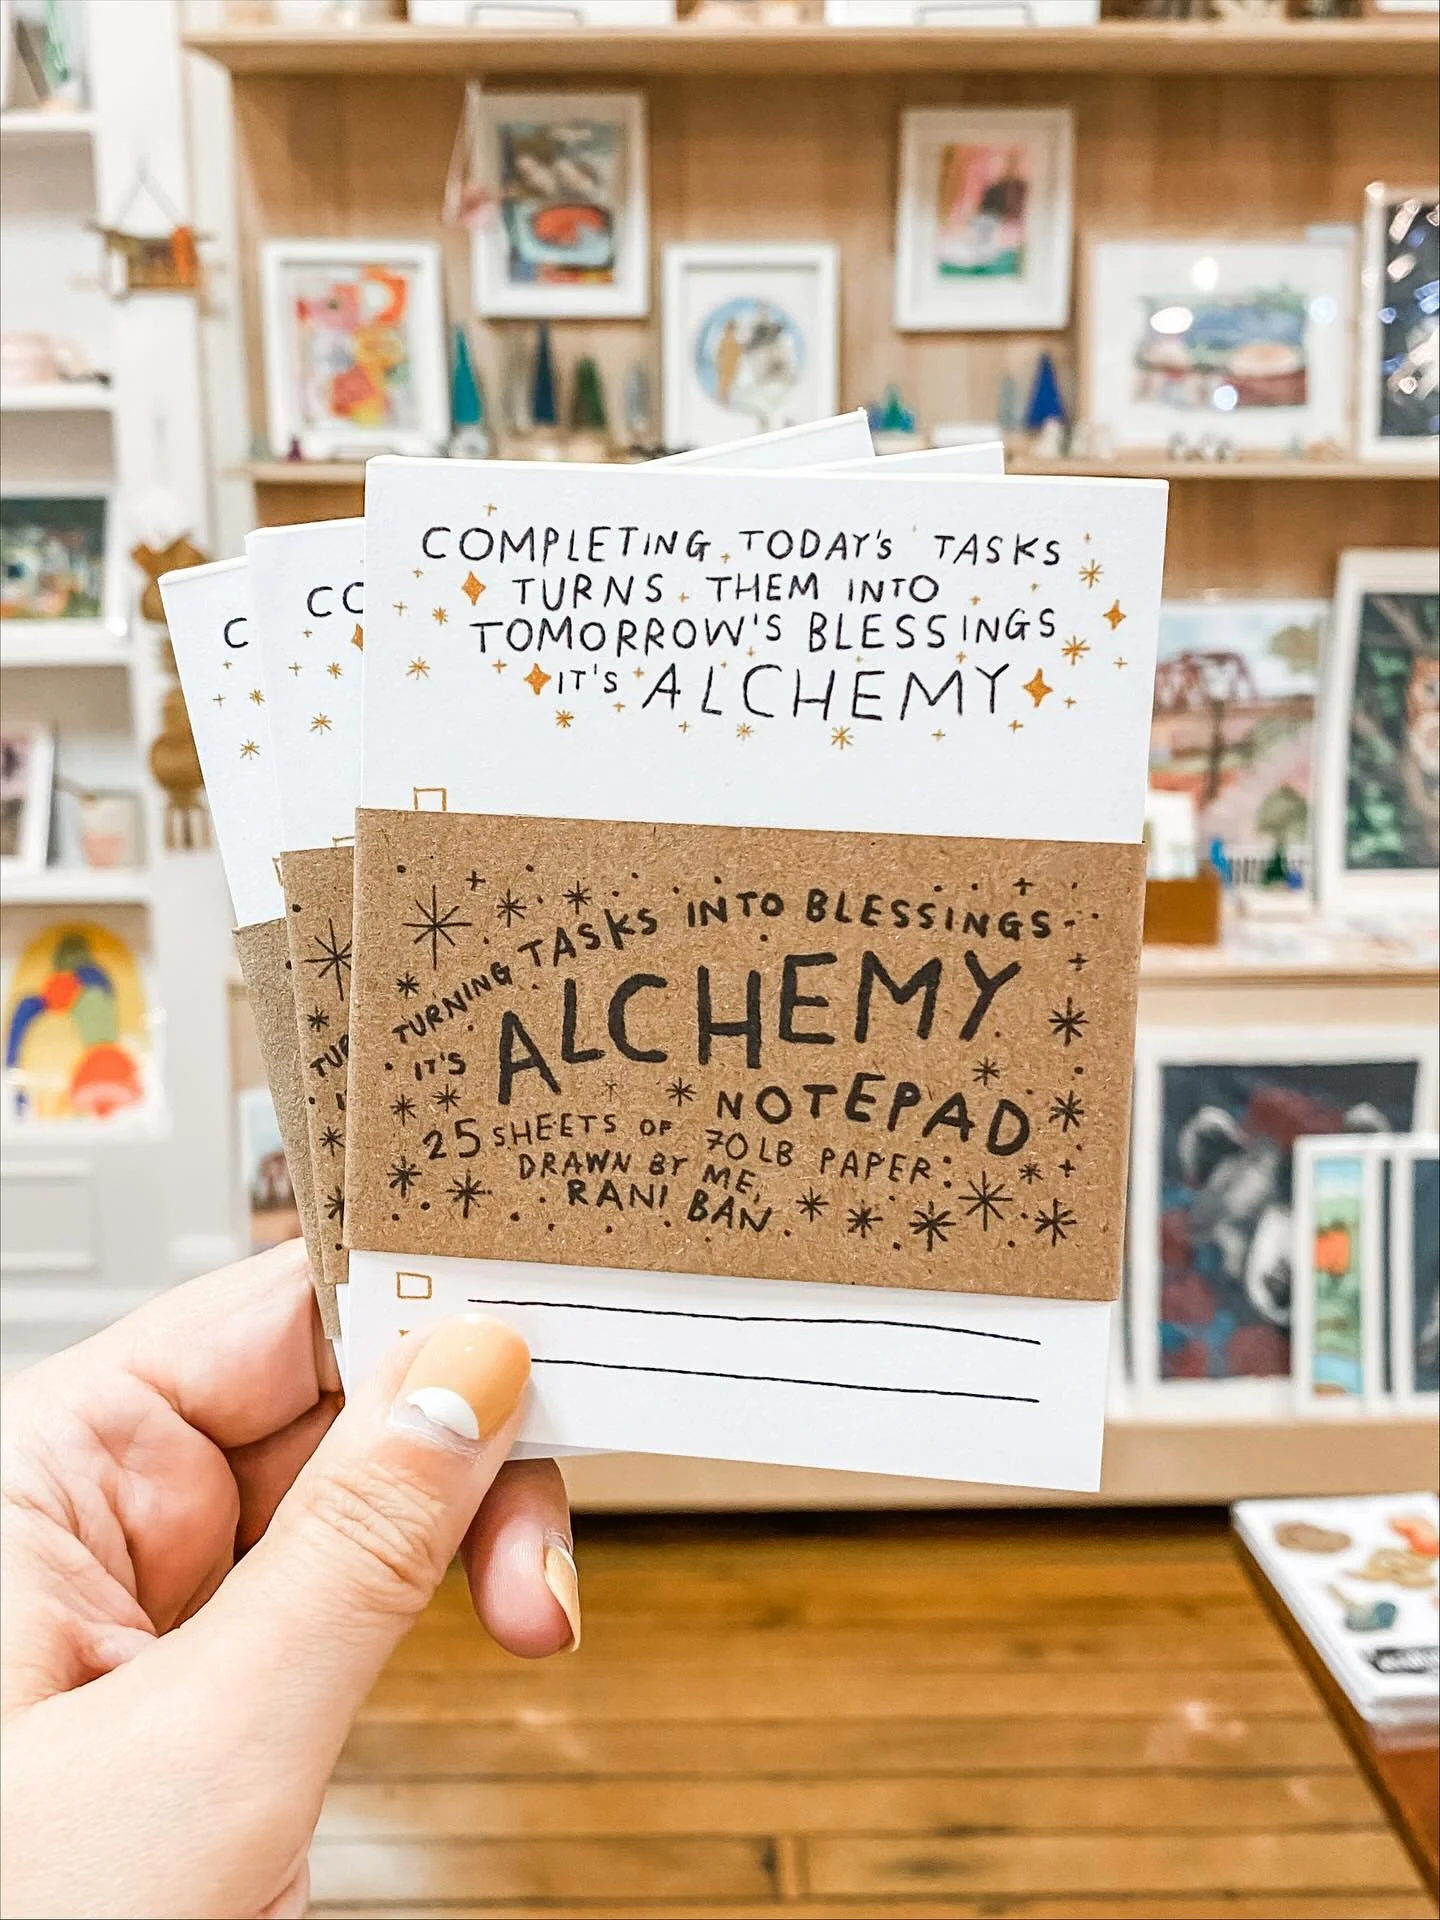 COMPLETING TODAY'S TASKS
TURNS THEM INTO
TOMORROW'S BLESSINGS
IT'S ALCHEMY
TURNING TASKS INTO BLESSINGS
IT'S ALCHEMY
NOTEPAD
25 SHEETS OF 70LB PAPER:
DRAWN BY ME,
RANI BAN
C
CO
TUR